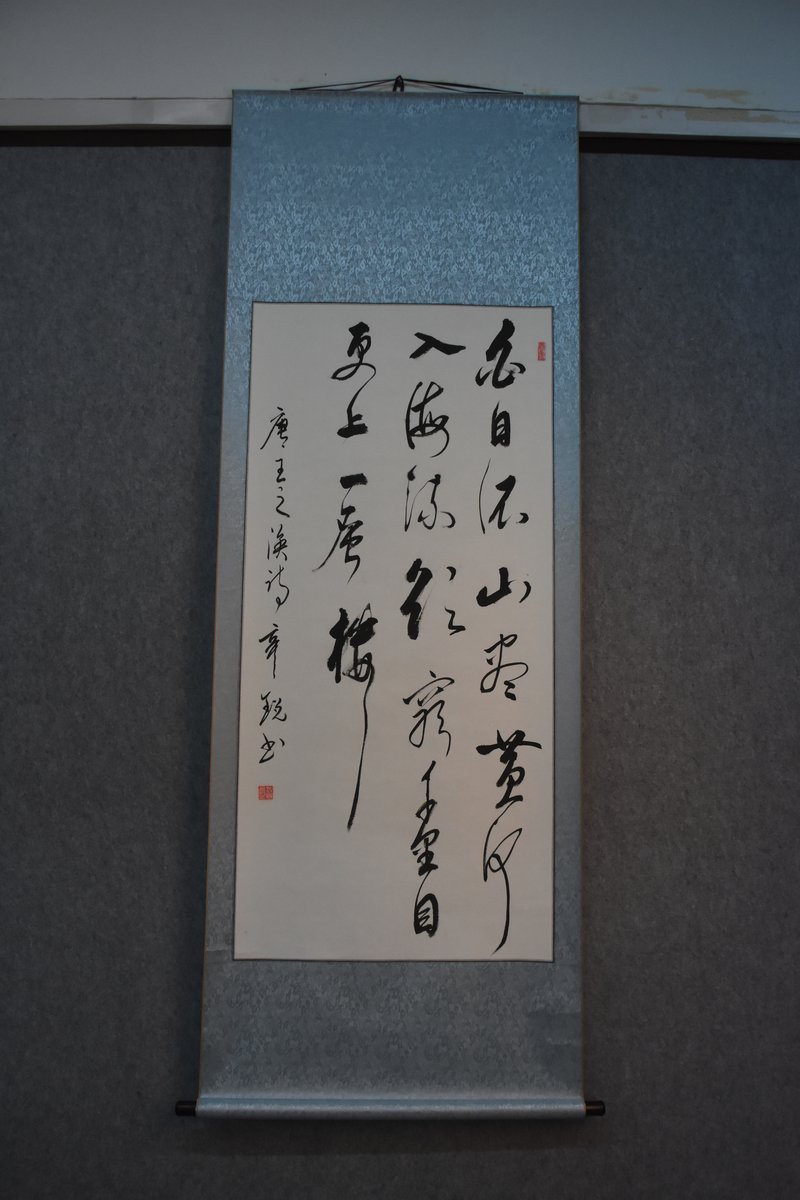 白日依山尽黄河
入海流欲穷千里目
更上一层楼
唐王之涣诗 辛锐书